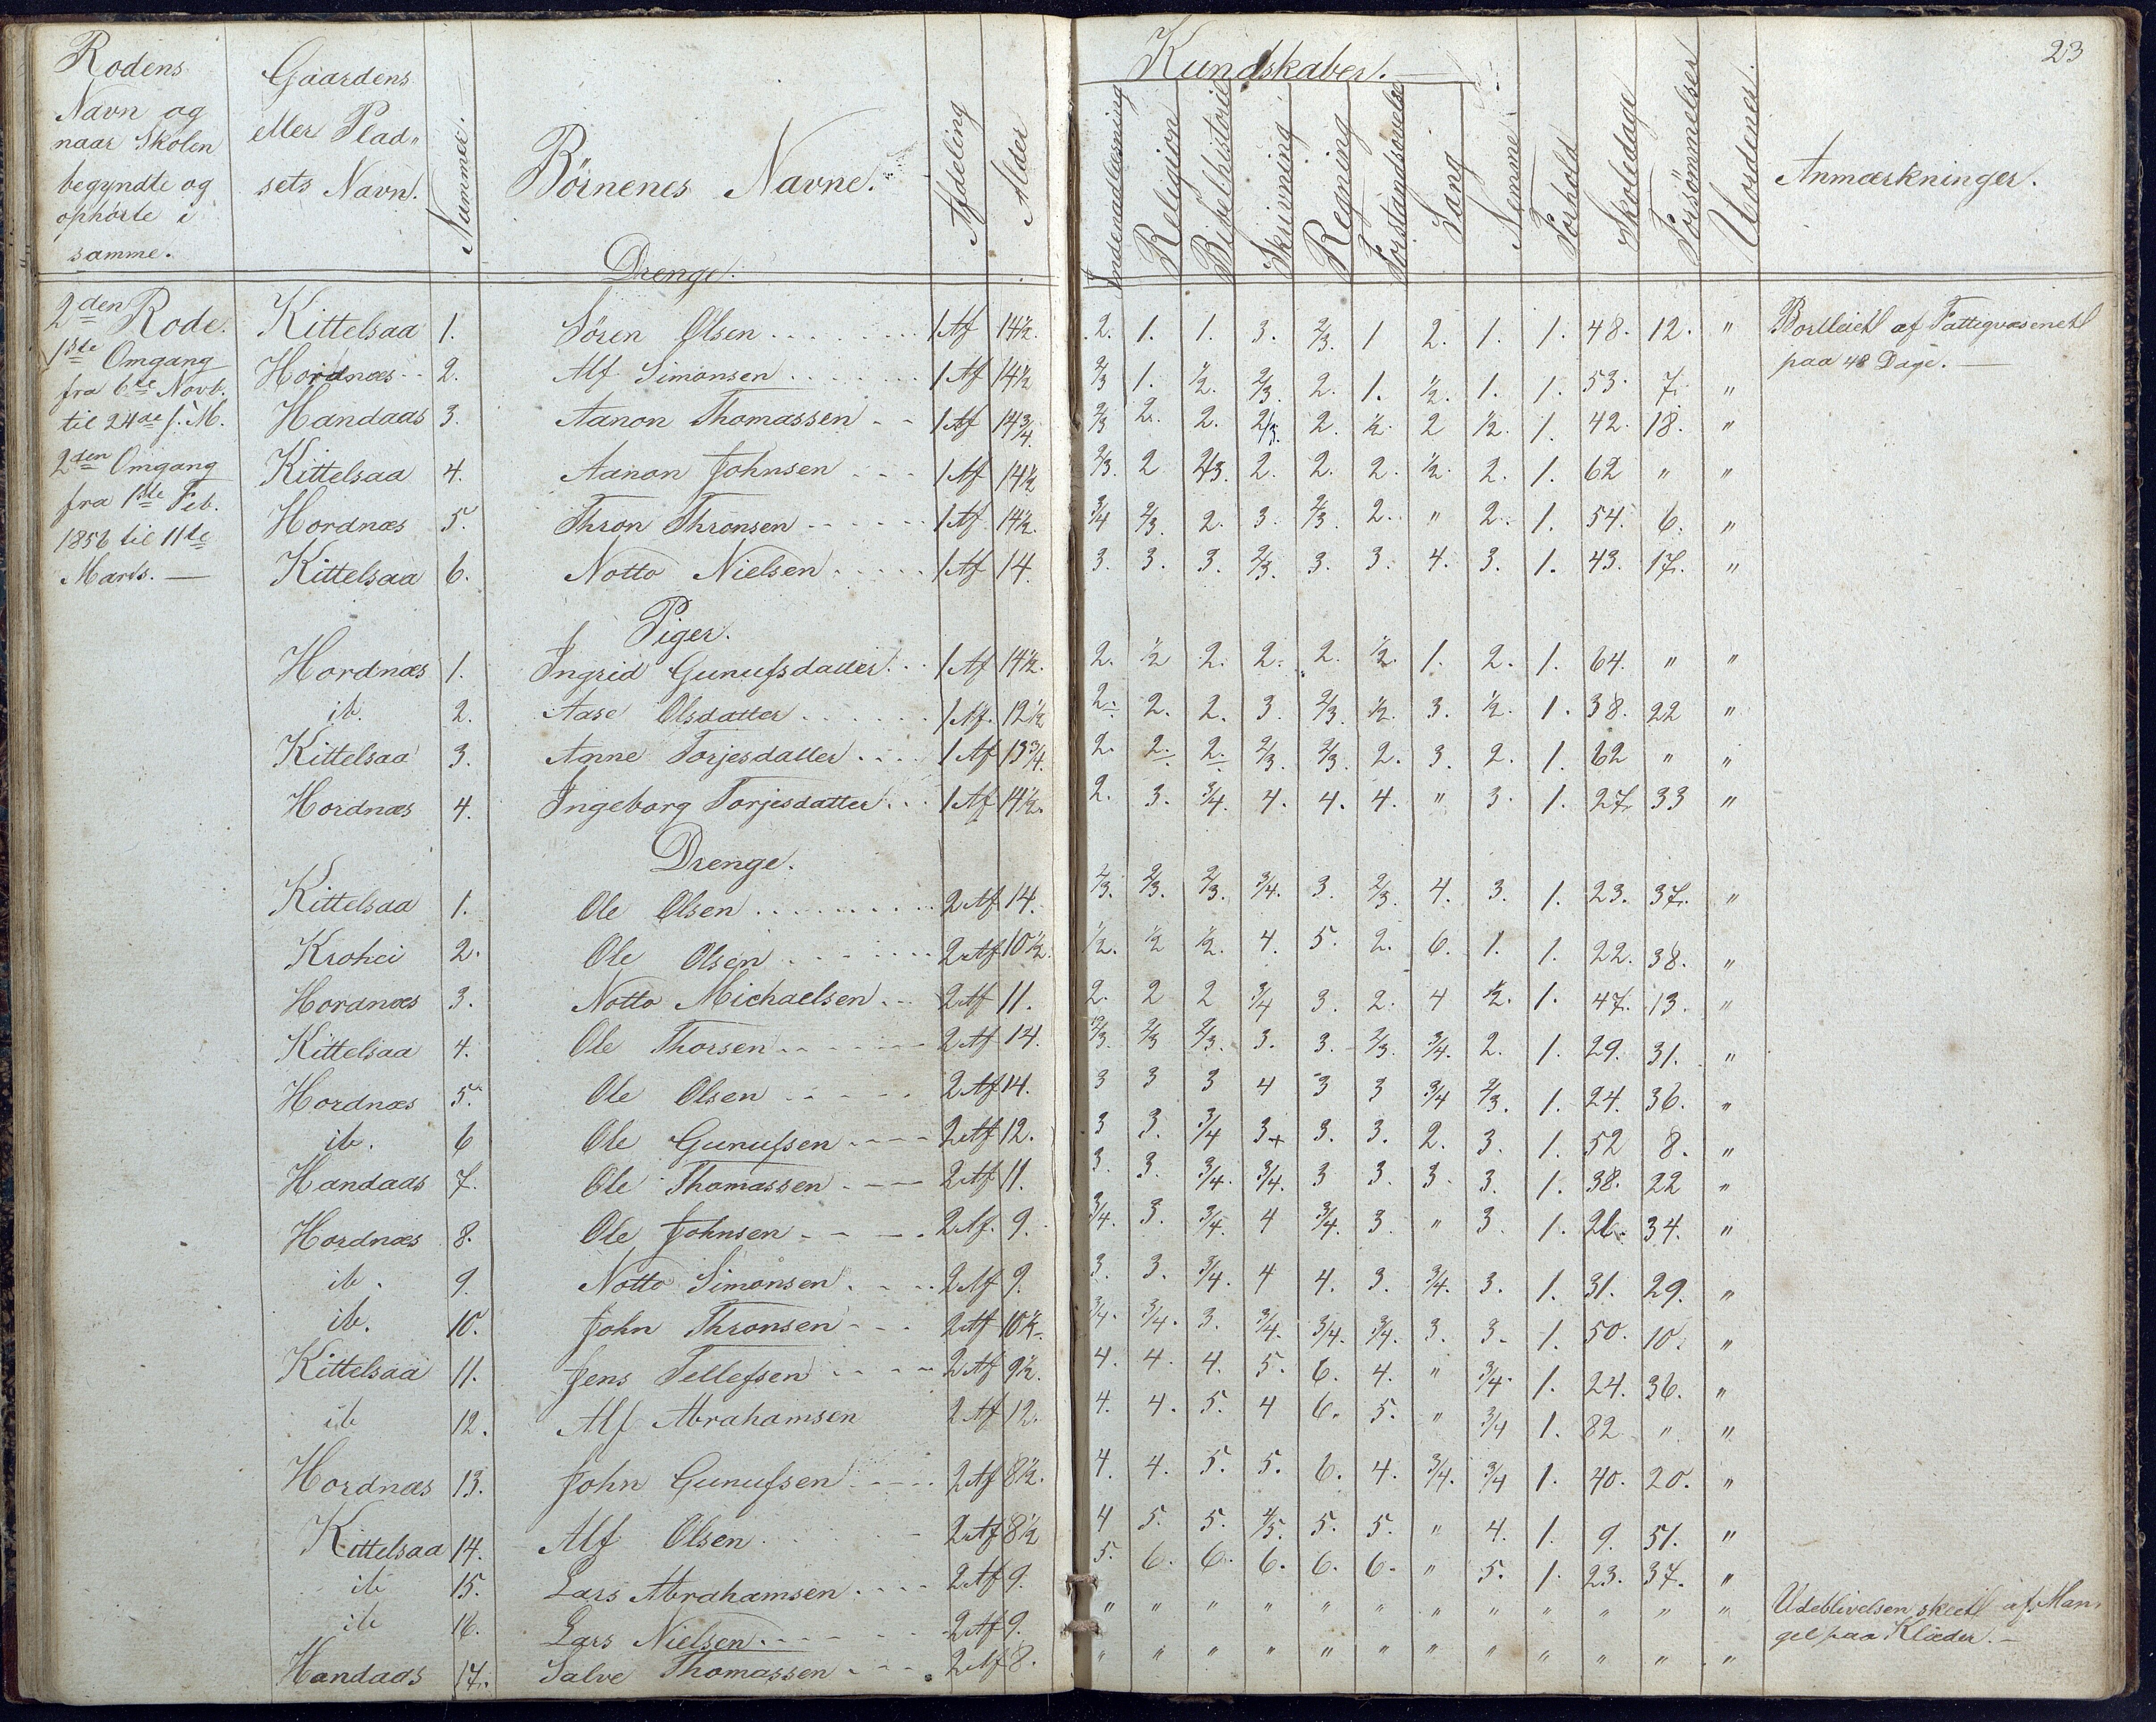 23
Rodens Navn og naar Skolen begyndte og ophörte i samme. | Gaardens eller Pladsets Navn. | Nummer. | Börnenes Navne. | Afdeling | Alder | Kundskaber. | Indenadlæsning | Religion | Bibelhistorie | Skrivning | Regning | Forstandsøvelse | Sang | Nemme | Forhold | Skoledage | Forsömmelser | Uordener. | Anmærkninger.
Drenge.
2den Rode. | Kittelsaa | 1. | Sören Olsen | 1 Af | 14½. | 2. | 1. | 1. | 3. | 2/3. | 1 | 2. | 1. | 1. | 48. | 12. | " | Bortleiet af Fattigvæsenet
paa 48 Dage. —
1ste Omgang | Hordnæs | 2. | Alf Simonsen | 1 Af | 14½ | 2/3 | 1. | ½. | 2/3. | 2. | 1. | ½. | 1. | 1. | 53. | 7. | "
fra 6te Novb.
til 24de s. M. | Handaas | 3. | Aanon Thomassen | 1 Af | 14¾. | 2/3 | 2. | 2. | 2/3. | 2. | ½. | 2 | ½. | 1. | 42. | 18. | "
2den Omgang | Kittelsaa | 4. | Aanon Johnsen | 1 Af | 14½ | 2/3. | 2 | 2/3. | 2. | 2. | 2. | ½. | 2. | 1. | 62 | " | "
fra 1ste Feb. | Hordnæs | 5. | Thron Thronsen | 1 Af. | 14½. | 3/4 | 2/3. | 2. | 3. | 2/3. | 2. | " | 2. | 1. | 54. | 6. | "
1856 til 11te
Marts. — | Kittelsaa | 6. | Notto Nielsen | 1 Af | 14. | 3. | 3. | 3. | 2/3. | 3. | 3. | 4. | 3. | 1. | 43. | 17. | "
Piger.
Hordnæs | 1. | Ingrid Gunufsdatter | 1 Af | 14½. | 2. | ½ | 2. | 2. | 2. | ½. | 1. | 2. | 1. | 64. | " | "
ib. | 2. | Aase Olsdatter | 1 Af. | 12½ | 2. | 2. | 2. | 3. | 2/3. | ½. | 3. | ½. | 1. | 38. | 22 | "
Kittelsaa | 3. | Anne Torjesdatter | 1 Af | 13¾. | 2. | 2. | 2. | 2/3. | 2/3. | 2. | 3. | 2. | 1. | 62 | " | "
Hordnæs | 4. | Ingeborg Torjesdatter | 1 Af | 14½. | 2. | 3. | 3/4. | 4. | 4. | 4. | " | 3. | 1. | 27. | 33 | "
Drenge.
Kittelsaa | 1. | Ole Olsen | 2 Af | 14. | 2/3. | 2/3. | 2/3. | 3/4. | 3. | 2/3. | 4. | 3. | 1. | 23. | 37. | "
Krohei | 2. | Ole Olsen | 2 Af | 10½. | ½. | ½ | ½. | 4. | 5. | 2. | 6. | 1. | 1. | 22. | 38. | "
Hordnæs | 3. | Notto Michaelsen | 2 Af | 11. | 2. | 2 | 2 | 3/4 | 3. | 2. | 4 | ½. | 1. | 47. | 13. | "
Kittelsaa | 4. | Ole Thorsen | 2 Af | 14. | 2/3. | 2/3 | 2/3. | 3. | 3. | 2/3. | 3/4. | 2. | 1. | 29. | 31. | "
Hordnæs | 5. | Ole Olsen | 2 Af | 14. | 3 | 3 | 3 | 4 | 3 | 3 | 3/4 | 2/3. | 1. | 24. | 36. | "
ib. | 6 | Ole Gunufsen | 2 Af | 12. | 3 | 3. | 3/4 | 3+ | 3. | 3. | 2. | 3. | 1. | 52 | 8. | "
Handaas | 7. | Ole Thomassen | 2 Af | 11. | 3. | 3. | 3/4. | 3/4. | 3 | 3. | 3. | 3. | 1. | 38. | 22 | "
Hordnæs | 8. | Ole Johnsen | 2 Af. | 9. | 3/4. | 3. | 3/4. | 4 | 3/4. | 3. | " | 3. | 1. | 26. | 34. | "
ib. | 9. | Notto Simonsen | 2 Af | 9. | 3. | 3. | 3/4. | 4 | 4. | 3. | 3/4. | 3. | 1. | 31. | 29. | "
ib. | 10. | John Thronsen | 2 Af | 10½. | 3/4. | 3/4. | 3. | 3/4. | 3/4. | 3/4. | 3. | 3. | 1. | 50. | 10. | "
Kittelsaa | 11. | Jens Tellefsen | 2 Af | 9½. | 4. | 4. | 4. | 5. | 6. | 4. | " | 3/4. | 1. | 24. | 36. | "
ib | 12. | Alf Abrahamsen | 2 Af | 12. | 4. | 4. | 5. | 4 | 6. | 5. | " | 3/4 | 1. | 82 | " | "
Hordnæs | 13. | John Gunufsen | 2 Af | 8½. | 4. | 4. | 5. | 5. | 6. | 4. | 3/4. | 3/4 | 1. | 40. | 20. | "
Kittelsaa | 14. | Alf Olsen | 2 Af | 8½ | 4 | 5. | 5. | 4/5. | 5. | 5. | " | 4. | 1. | 9. | 51. | "
ib | 15. | Lars Abrahamsen | 2 Af | 9. | 5. | 6. | 6. | 6. | 6. | 6. | " | 5. | 1. | 23. | 37. | "
ib | 16. | Lars Nielsen | 2 Af | 9. | " | " | " | " | " | " | " | " | " | " | " | " | Udeblivelsen skeet af Man-
gel paa Klæder. —
Handaas | 17. | Salve Thomassen | 2 Af | 8. | " | " | " | " | " | " | " | " | " | " | " | "